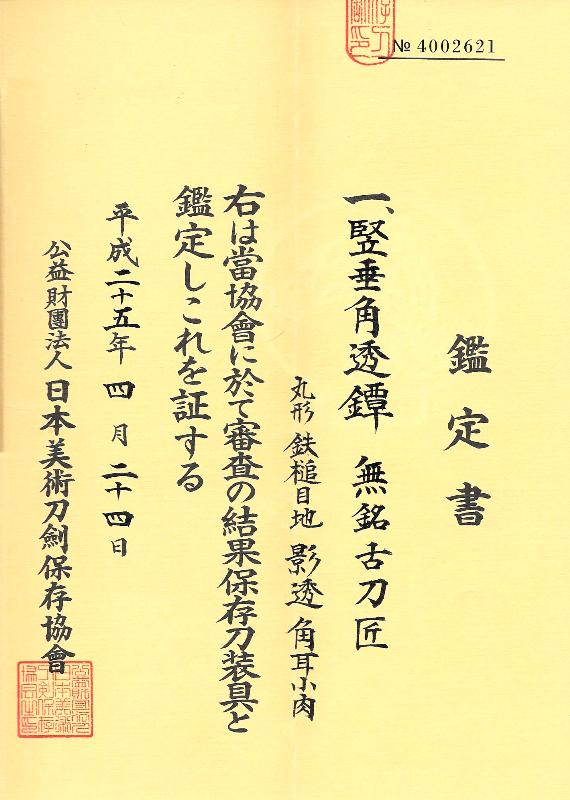 № 4002621
鑑定書
一、竪垂角透鐔 無銘古刀匠
丸形 鉄槌目地 影透 角耳小肉
右は當協會に於て審査の結果保存刀装具と
鑑定しこれを証する
平成二十五年 四月 二十四日
公益財團法人 日本美術刀劍保存協會